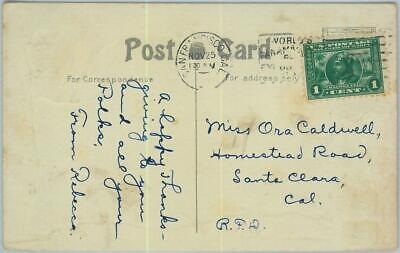 Post Card
For Correspondence
For address only
SAN FRANCISCO, CAL.
NOV 25
U.S. POSTAGE
1 CENT 1
A happy Thanks-
giving to you
and all your
folks.
From Rebecca.
Miss Ora Caldwell,
Homestead Road,
Santa Clara,
Cal.
R.F.D.